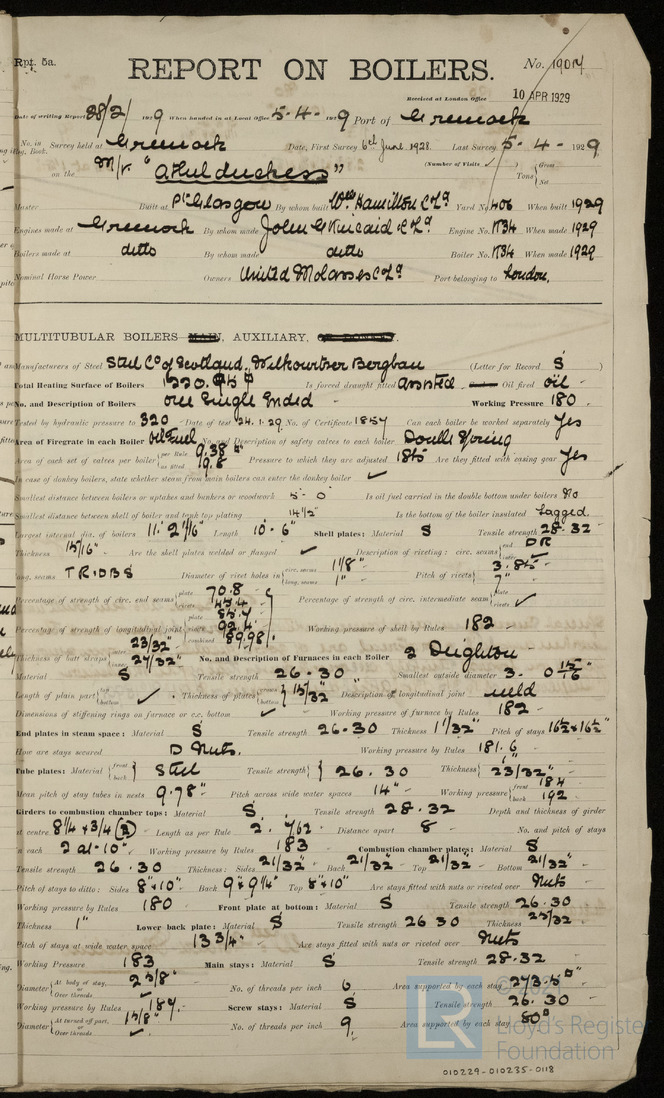 Rpt. 5a.
REPORT ON BOILERS.
No. 19014
Received at London Office 10 APR 1929
Date of writing Report 28/2/ 1929 When handed in at Local Office 5-4- 1929 Port of Greenock
No. in Reg. Book. Survey held at Greenock Date, First Survey 6th June 1928. Last Survey 5-4- 1929
on the M/V. "Athelduchess" (Number of Visits ) Tons { Gross Net
Master Built at Pt Glasgow By whom built Wm Hamilton & Co Ld Yard No. 406 When built 1929
Engines made at Greenock By whom made John G Kincaid & Co Ld Engine No. K34 When made 1929
Boilers made at ditto By whom made ditto Boiler No. K34 When made 1929
Nominal Horse Power Owners United Molasses Co Ld Port belonging to London.
MULTITUBULAR BOILERS MAIN, AUXILIARY,
Manufacturers of Steel Steel Co of Scotland, Bergbau (Letter for Record S )
Total Heating Surface of Boilers Is forced draught fitted Assisted Oil fired oil
No. and Description of Boilers one Single Ended Working Pressure 180
Tested by hydraulic pressure to 320 Date of test 24.1.29. No. of Certificate 1857 Can each boiler be worked separately Yes
Area of Firegrate in each Boiler Oil Fuel No. and Description of safety valves to each boiler Double Spring
Area of each set of valves per boiler { per Rule 9.38 as fitted 19.8 Pressure to which they are adjusted 185 Are they fitted with easing gear Yes
In case of donkey boilers, state whether steam from main boilers can enter the donkey boiler ✓
Smallest distance between boilers or uptakes and bunkers or woodwork 5'-0" Is oil fuel carried in the double bottom under boilers No
Smallest distance between shell of boiler and tank top plating 14½" Is the bottom of the boiler insulated Lagged.
Largest internal dia. of boilers 11'. 2 1/16" Length 10'-6" Shell plates: Material S Tensile strength 28.32
Thickness 15/16" Are the shell plates welded or flanged ✓ Description of riveting: circ. seams { end DR inter. ✓
long. seams TR.DBS Diameter of rivet holes in { circ. seams 1 1/8" long. seams 1" Pitch of rivets { 3.85" 7"
Percentage of strength of circ. end seams { plate 70.8 rivets 45.4 Percentage of strength of circ. intermediate seam { plate rivets ✓
Percentage of strength of longitudinal joint { plate 85.7 rivets 92.4 combined 89.98 Working pressure of shell by Rules 182
Thickness of butt straps { outer 23/32" inner 27/32" No. and Description of Furnaces in each Boiler 2 Deighton
Material S Tensile strength 26-30 Smallest outside diameter 3'. 0 15/16"
Length of plain part { top bottom ✓ Thickness of plates { crown bottom 15/32" Description of longitudinal joint weld
Dimensions of stiffening rings on furnace or c.c. bottom ✓ Working pressure of furnace by Rules 182
End plates in steam space: Material S Tensile strength 26.30 Thickness 1 1/32" Pitch of stays 16½ x 16½"
How are stays secured D Nuts. Working pressure by Rules 181.6
Tube plates: Material { front back Steel Tensile strength { 26.30 Thickness { 1" 23/32"
Mean pitch of stay tubes in nests 9.78" Pitch across wide water spaces 14" Working pressure { front 184 back 192
Girders to combustion chamber tops: Material S. Tensile strength 28.32 Depth and thickness of girder
at centre 8¼ x 3/4 (2) Length as per Rule 2. 7 Distance apart 8 No. and pitch of stays
in each 2 at 10" Working pressure by Rules 183 Combustion chamber plates: Material S
Tensile strength 26.30 Thickness: Sides 21/32" Back 21/32" Top 21/32" Bottom 21/32"
Pitch of stays to ditto: Sides 8"x10" Back 9"x9¼" Top 8"x10" Are stays fitted with nuts or riveted over Nuts
Working pressure by Rules 180 Front plate at bottom: Material S Tensile strength 26.30
Thickness 1" Lower back plate: Material S Tensile strength 26 30 Thickness 23/32"
Pitch of stays at wide water space 13 3/4" Are stays fitted with nuts or riveted over Nuts
Working Pressure 183 Main stays: Material S Tensile strength 28.32
Diameter { At body of stay, or Over threads 2 5/8" No. of threads per inch 6 Area supported by each stay 273.5"
Working pressure by Rules 184. Screw stays: Material S Tensile strength 26.30
Diameter { At turned off part, or Over threads 1 5/8" No. of threads per inch 9. Area supported by each stay 80"
© 2021
LR
Lloyd's Register
Foundation
010229-010235-0118